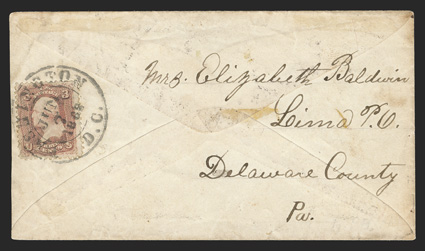 Mrs. Elizabeth Baldwin
Lima P.O.
Delaware County
Pa.
D.C.
3